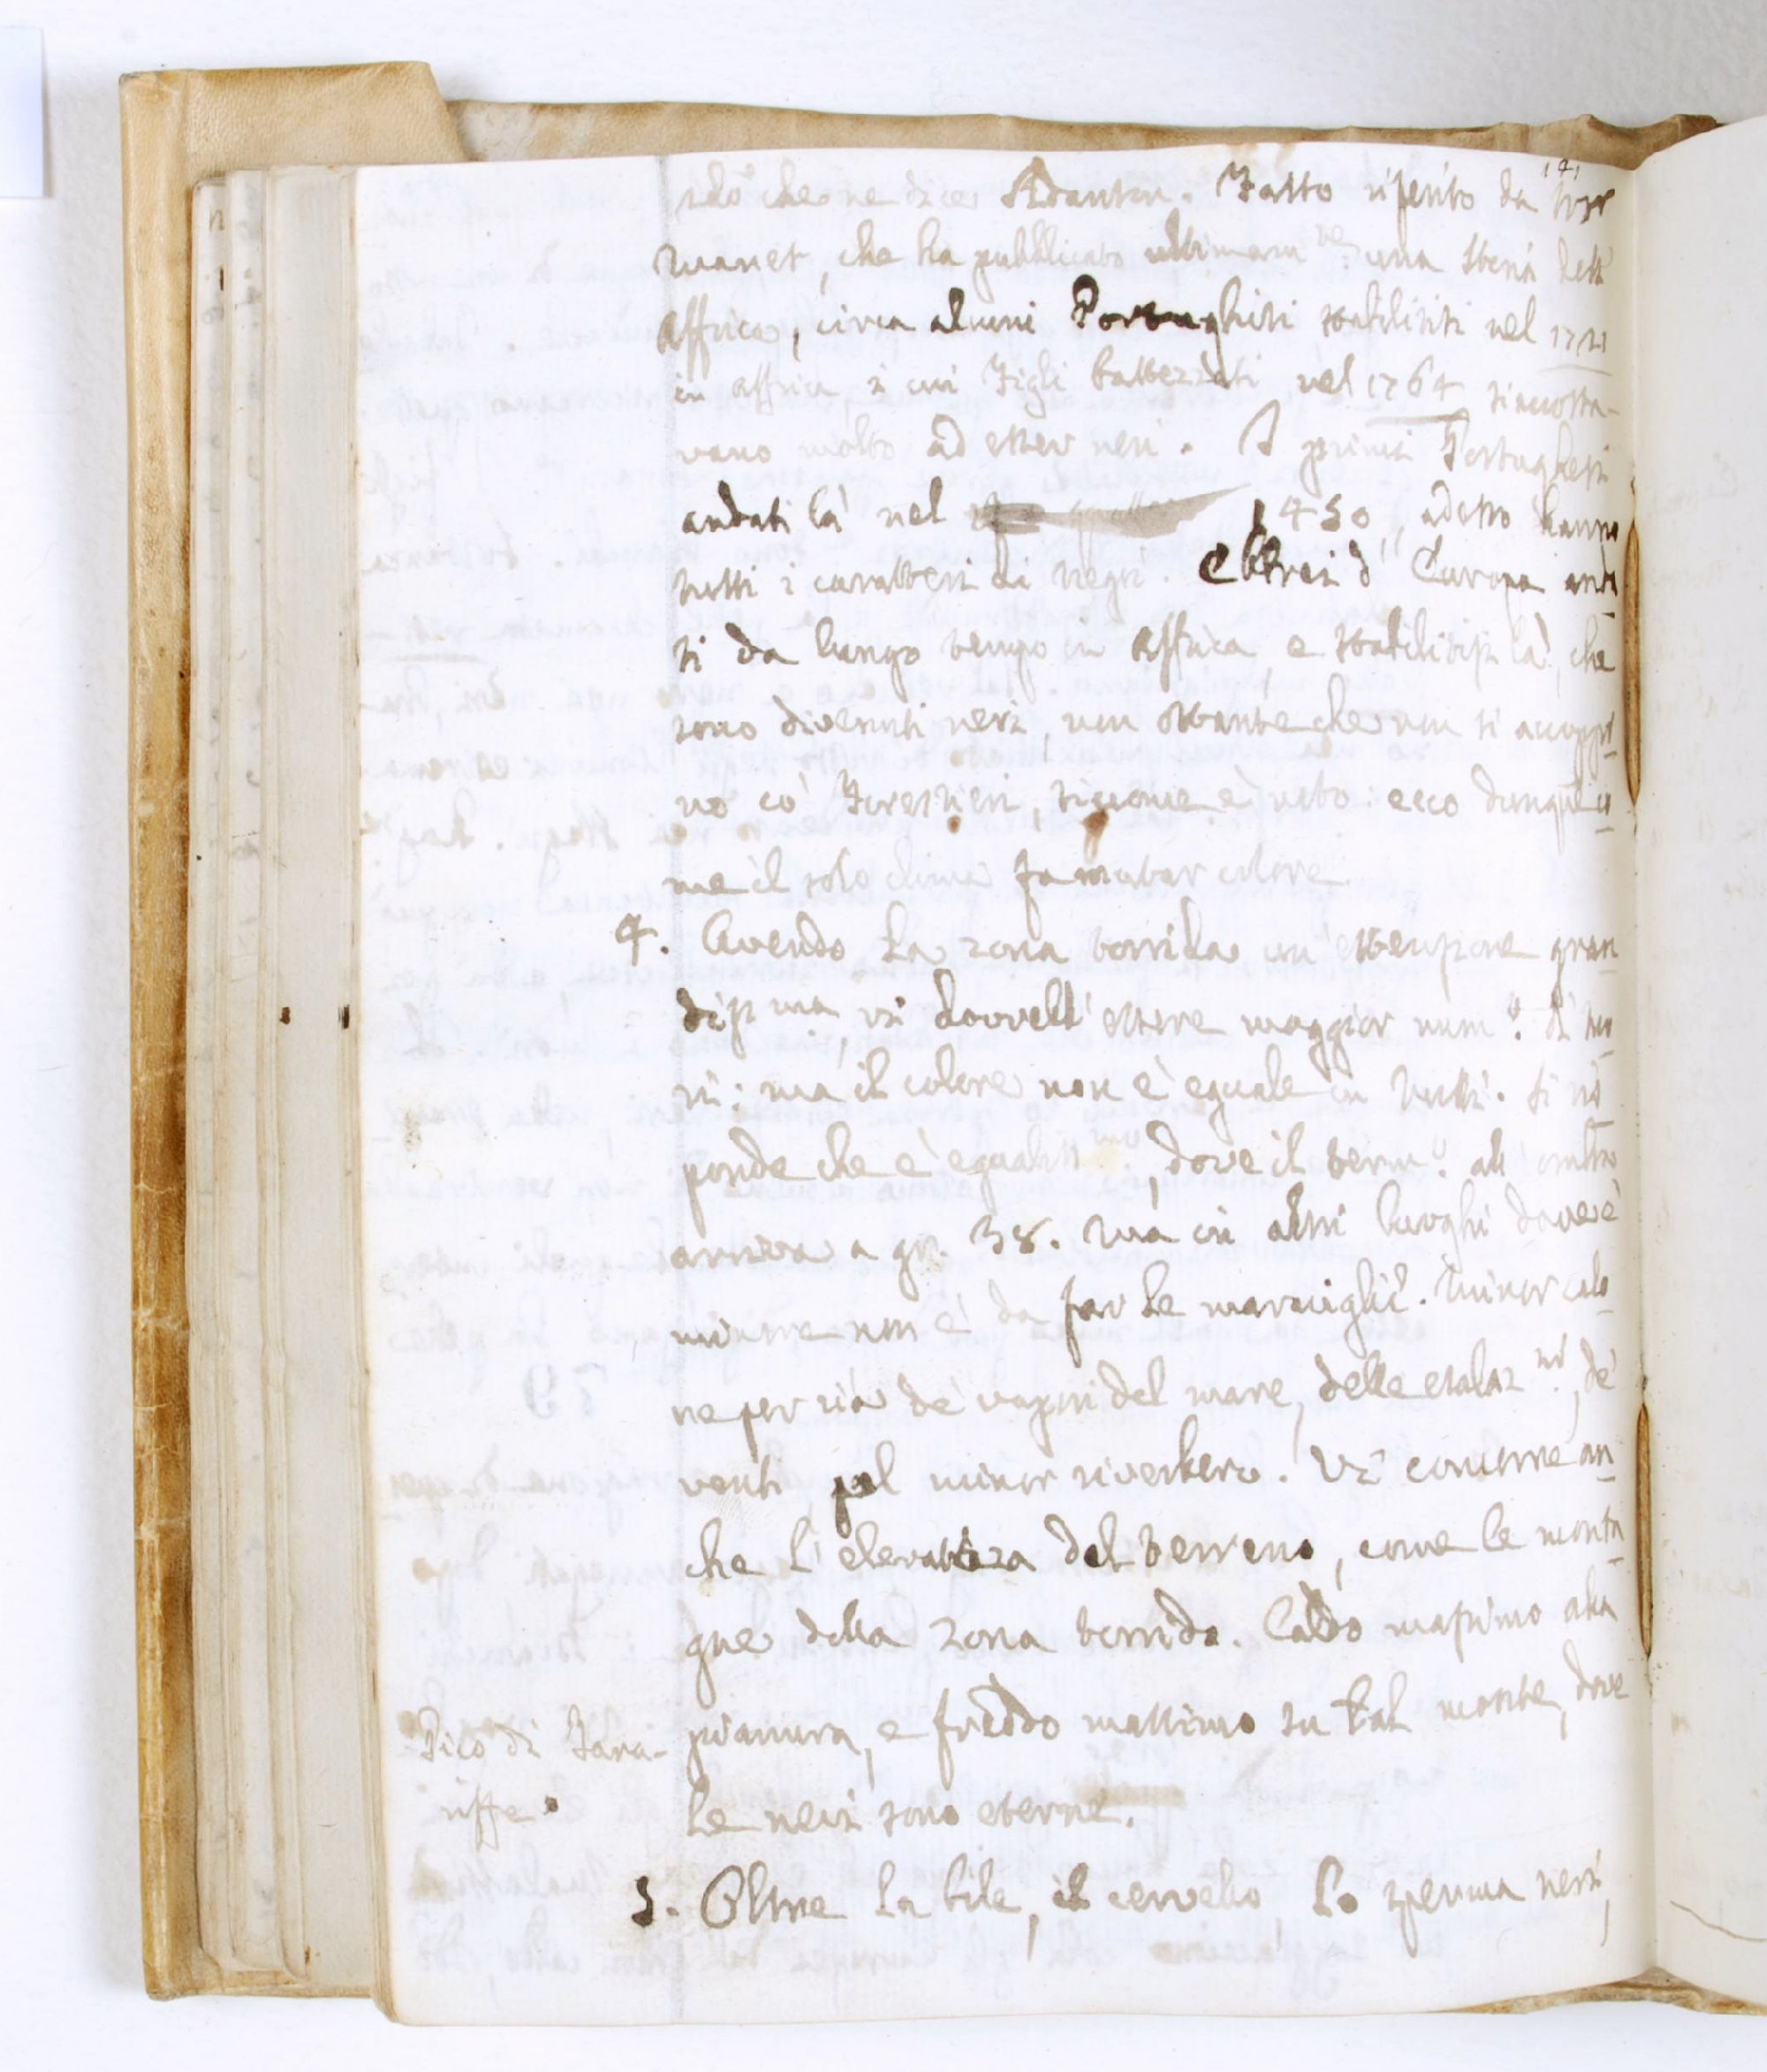 ciò che ne dice Adanson. Fatto riferito da
manet, che ha pubblicato ultimam.te una storia dell'
Affrica, circa alcuni Portoghesi stabilitisi nel 1721
in Affrica, i cui figli battezzati nel 1764 s'accosta-
vano molto ad esser neri. I primi Portoghesi
andati là nel 1450 adesso hanno
tutti i caratteri de negri. Ebbrei d'Europa anda
ti da lungo tempo in Affrica e stabilitisi là, che
sono divenuti neri, non ostante che non si accoppi
no co' Forestieri siccome è noto: ecco dunque co
me il solo clima fa mutar colore
4. Avendo la zona torrida un' estensione gran
dissima vi dovrebb' essere maggior num.o di ne
ri: ma il colore non è eguale in tutti. Si ris
ponde che è eguale dove il term.o all' ombra
arriva a gr. 38. Ma in altri luoghi dove è
minore non è da far le maraviglie. Minor calo
re per ciò de' vapori del mare, delle esalaz.ni, de'
venti pel minor riverbero. Vi concorre an
che l' elevatezza del terreno, come le monta
gne della zona torrida. Caldo massimo alla
pianura, e freddo massimo su tal monte, dove
le nevi sono eterne.
Pico di Tana-
riffe
5. Oltre la bile, il cervello, lo sperma neri,